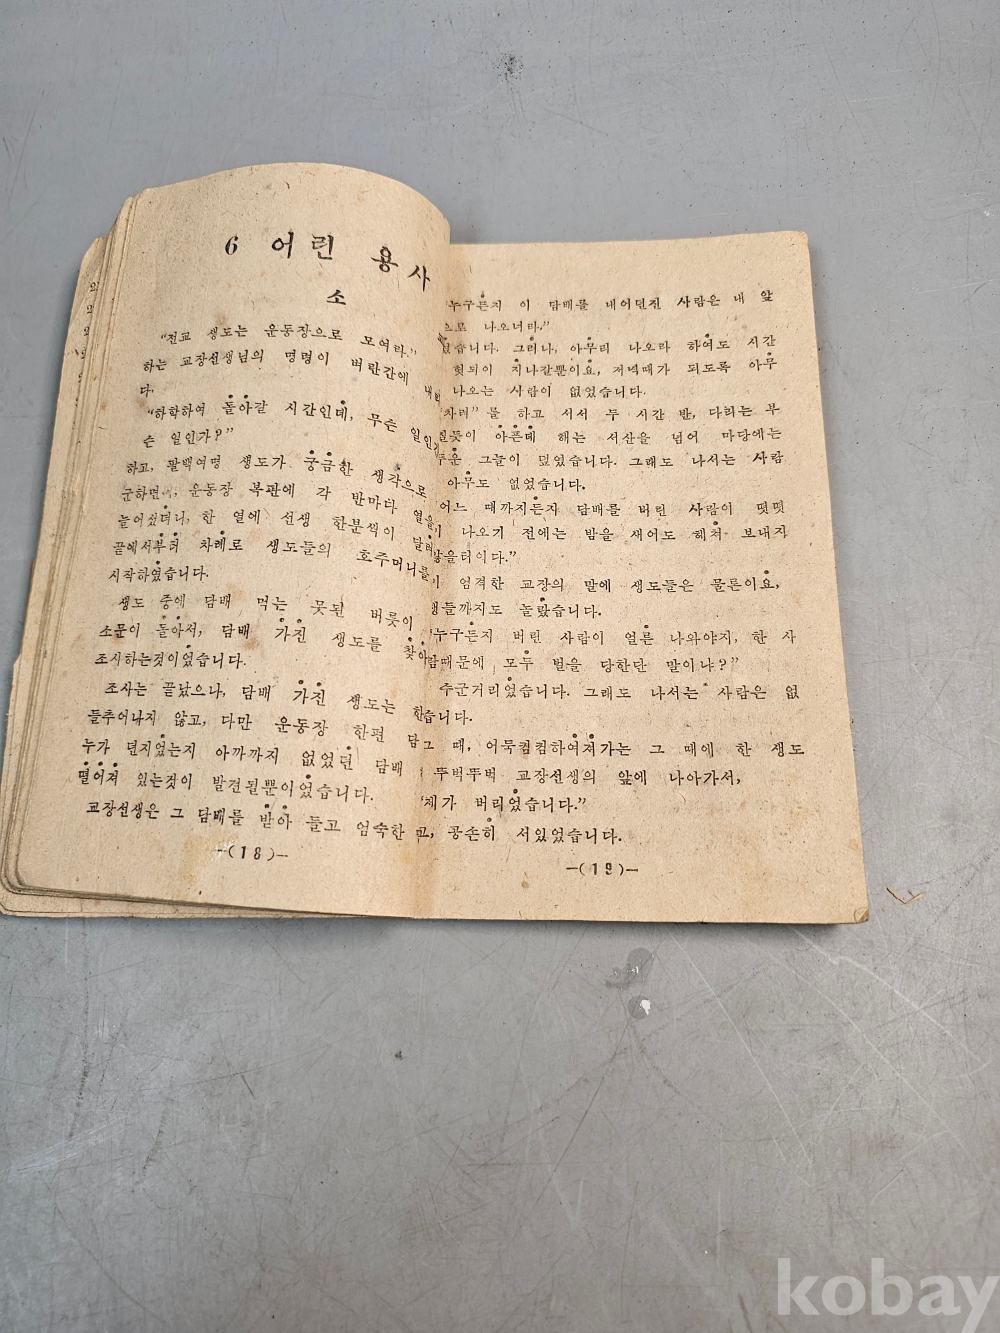 6 어린 용사
소
"전교 생도는 운동장으로 모여라."
하는 교장선생님의 명령이 벼란간에 내
다.
"하학하여 돌아갈 시간인데, 무슨 일인
슨 일인가?"
하고, 팔백여명 생도가 궁금한 생각으로
군하면, 운동장 복판에 각 반마다 열을
늘어섰더니, 한 열에 선생 한분씩이
끝에서부터 차례로 생도들의 호주머니를
시작하였습니다.
생도 중에 담배 먹는 못된 버릇이
소문이 돌아서, 담배 가진 생도를 찾아
조사하는것이었습니다.
조사는 끝났으나, 담배 가진 생도는 한
들추어나지 않고, 다만 운동장 한편 담
누가 던지었는지 아까까지 없었던 담배
떨어져 있는것이 발견될뿐이었습니다.
교장선생은 그 담배를 받아 들고 엄숙한
-(18)-
누구든지 이 담배를 내어던진 사람은 내 앞
으로 나오너라."
었습니다. 그러나, 아무리 나오라 하여도 시간
헛되이 지나갈뿐이요, 저녁때가 되도록 아무
나오는 사람이 없었습니다.
차려"를 하고 서서 두 시간 반, 다리는 부
듯이 아픈데 해는 서산을 넘어 마당에는
두운 그늘이 덮였습니다. 그래도 나서는 사람
아무도 없었습니다.
어느 때까지든지 담배를 버린 사람이 떳떳
이 나오기 전에는 밤을 새어도 헤쳐 보내지
않을터이다."
이 엄격한 교장의 말에 생도들은 물론이요,
생들까지도 놀랐습니다.
"누구든지 버린 사람이 얼른 나와야지, 한 사
람때문에 모두 벌을 당한단 말이냐?"
수군거리었습니다. 그래도 나서는 사람은 없
습니다.
그 때, 어둑컴컴하여져가는 그 때에 한 생도
뚜벅뚜벅 교장선생의 앞에 나아가서,
"제가 버리었습니다."
고, 공손히 서있었습니다.
-(19)-
kobay